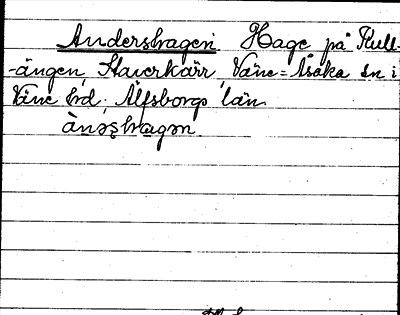 Andershagen Hage på Kull-
-ängen, Stavekärr, Väne=Åsaka sn i
Väne hd, Älfsborgs län
ànəʂhagən